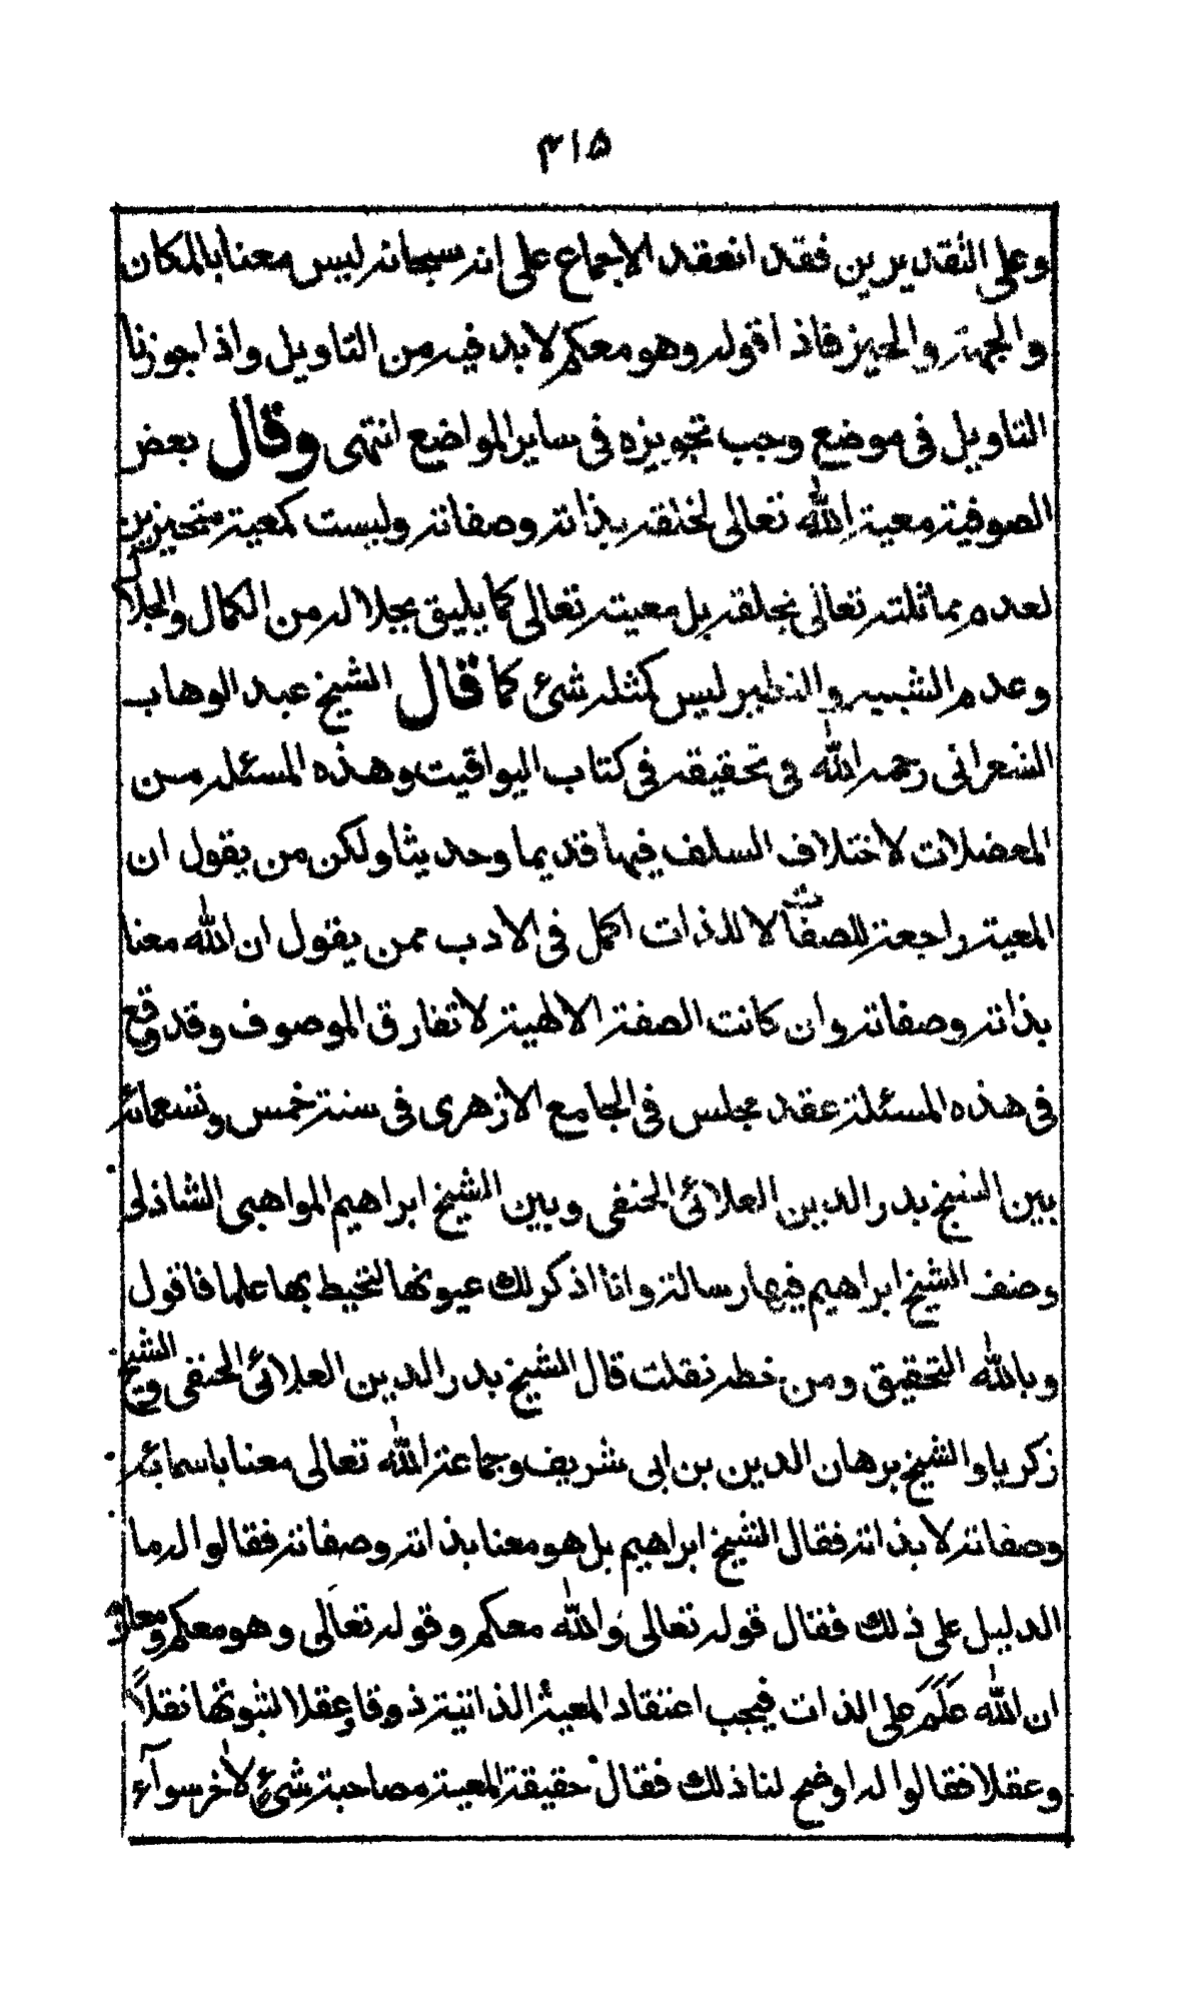 ۳۱۵
وعلى التقديرين فقد انعقد الاجماع على انه سبحانه ليس معنا بالمكان
والجهة والحيز فاذا قوله وهو معكم لا بد فيه من التاويل واذا جوزنا
التاويل فى موضع وجب تجويزه فى ساير المواضع انتهى وقال بعض
الصوفية معية الله تعالى لخلقه بذاته وصفاته وليست كمعية متحيزين
لعدم مماثلته تعالى بخلقه بل معيته تعالى كما يليق بجلاله من الكمال والجلال
وعدم الشبيه والنظير ليس كمثله شئ كما قال الشيخ عبد الوهاب
الشعرانى رحمه الله فى تحقيقه فى كتاب اليواقيت وهذه المسئله من
المعضلات لاختلاف السلف فيها قديما وحديثا ولكن من يقول ان
المعية راجعة للصفات لا للذات اكمل فى الادب ممن يقول ان الله معنا
بذاته وصفاته وان كانت الصفة الالهية لا تفارق الموصوف وقد وقع
فى هذه المسئلة عقد مجلس فى الجامع الازهرى فى سنة خمس وتسعمائة
بين الشيخ بدر الدين العلائى الحنفى وبين الشيخ ابراهيم المواهبى الشاذلى
وصنف الشيخ ابراهيم فيها رسالة وانا اذكر لك عيونها لتحيط بها علما فاقول
وبالله التحقيق ومن خطه نقلت قال الشيخ بدر الدين العلائى الحنفى والشيخ
زكريا والشيخ برهان الدين بن ابى شريف وجماعة الله تعالى معنا باسمائه
وصفاته لا بذاته فقال الشيخ ابراهيم بل هو معنا بذاته وصفاته فقالوا له ما
الدليل على ذلك فقال قوله تعالى والله معكم وقوله تعالى وهو معكم ومعلوم
ان الله عَلَم على الذات فيجب اعتقاد المعية الذاتية ذوقا وعقلا لثبوتها نقلاً
وعقلا فقالوا له اوضح لنا ذلك فقال حقيقة المعية مصاحبة شئ لآخر سوآء